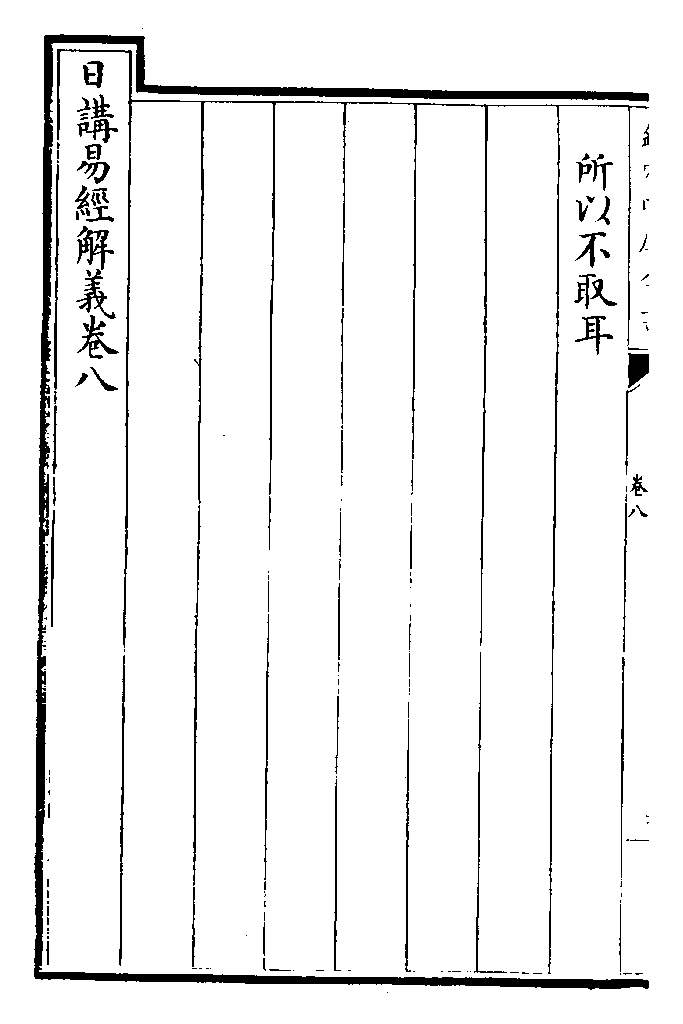 所以不取耳
日講易經解義卷八
卷八